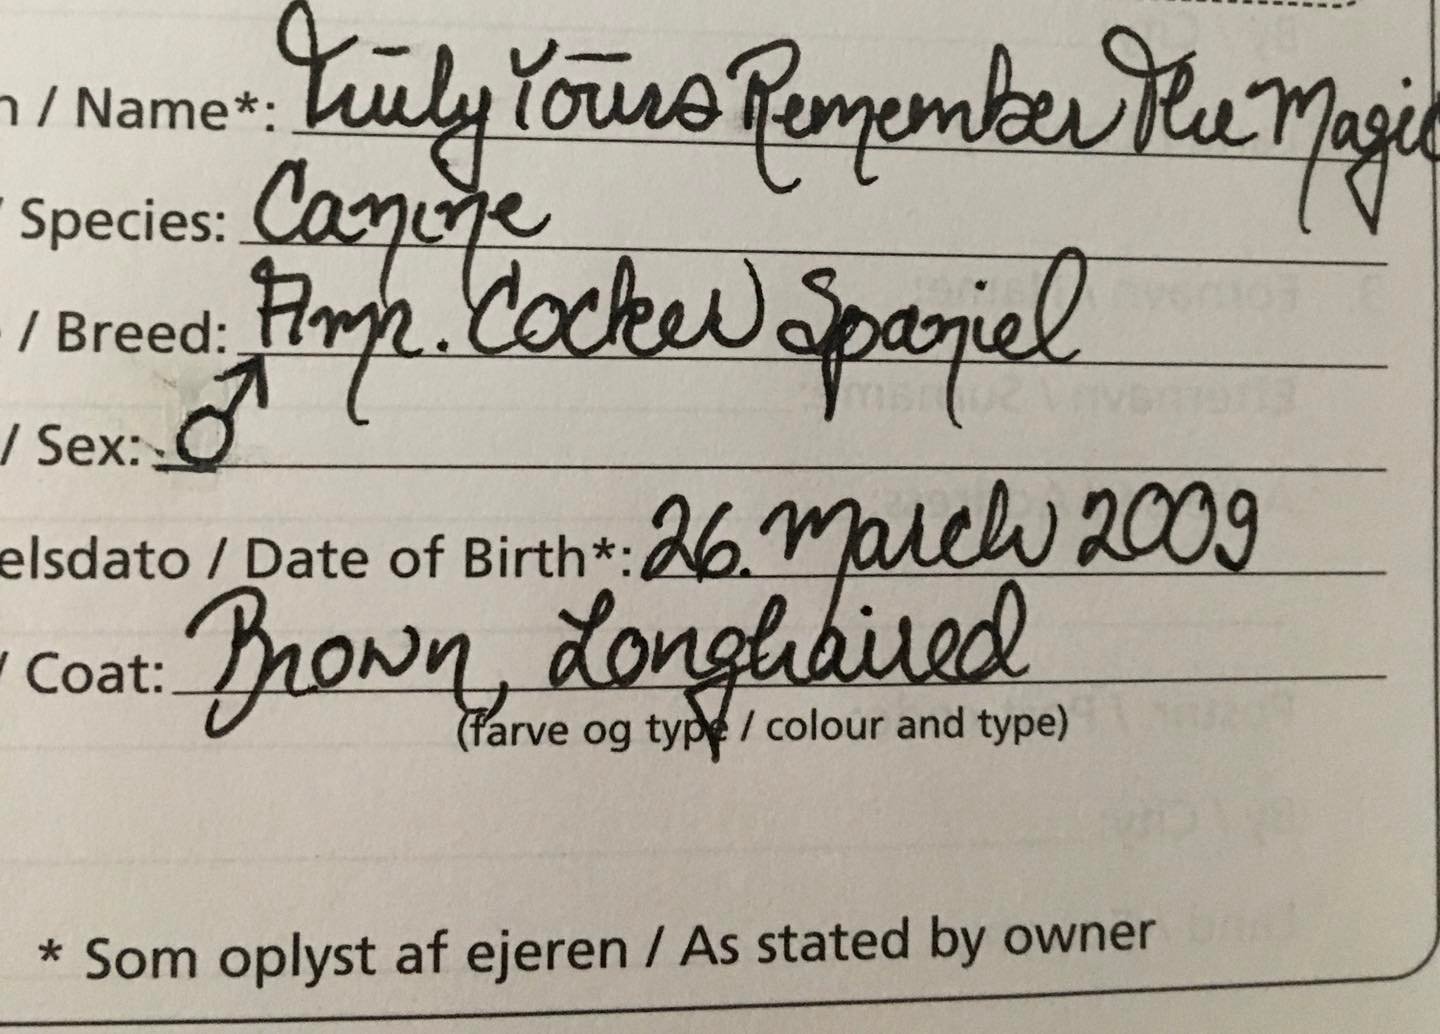 n / Name*: Truly Yours Remember The Magic
/ Species: Canine
/ Breed: Am. Cocker Spaniel
/ Sex: ♂
elsdato / Date of Birth*: 26. March 2009
/ Coat: Brown, Longhaired
(farve og type / colour and type)
* Som oplyst af ejeren / As stated by owner